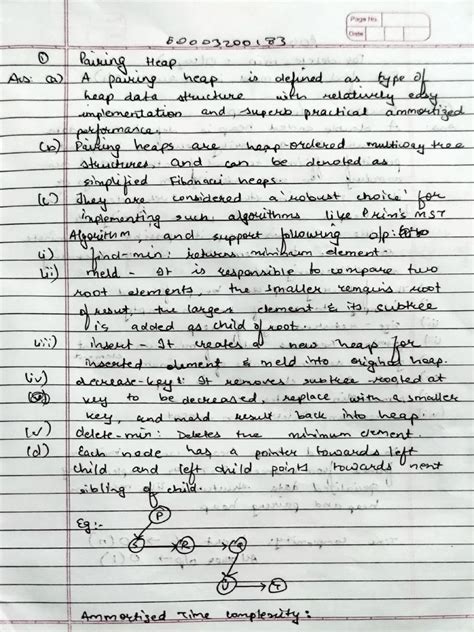 Page No.
Date
E0003200183
① Pairing Heap
Ans: (a) A pairing heap is defined as type of
heap data structure with relatively easy
implementation and superb practical ammortized
performance.
(b) Pairing heaps are heap-ordered multiway tree
structures and can be denoted as
simplified Fibonacci heaps.
(c) They are considered a 'robust choice' for
implementing such algorithms like Prim's MST
Algorithm, and support following o/p:
i) find-min: returns minimum element.
(ii) meld - It is responsible to compare two
root elements, the smaller remains root
of result, the larger element & its subtree
is added as child of root.
(iii) insert - It creates a new heap for
inserted element & meld into original heap.
(iv) decrease-key: It removes subtree rooted at
key to be decreased, replace with a smaller
key, and meld result back into heap.
(v) delete-min: Deletes the minimum element.
(d) Each node has a pointer towards left
child and left child points towards next
sibling of child.
Eg:-
P
S R Q
U T
Ammortized Time complexity: